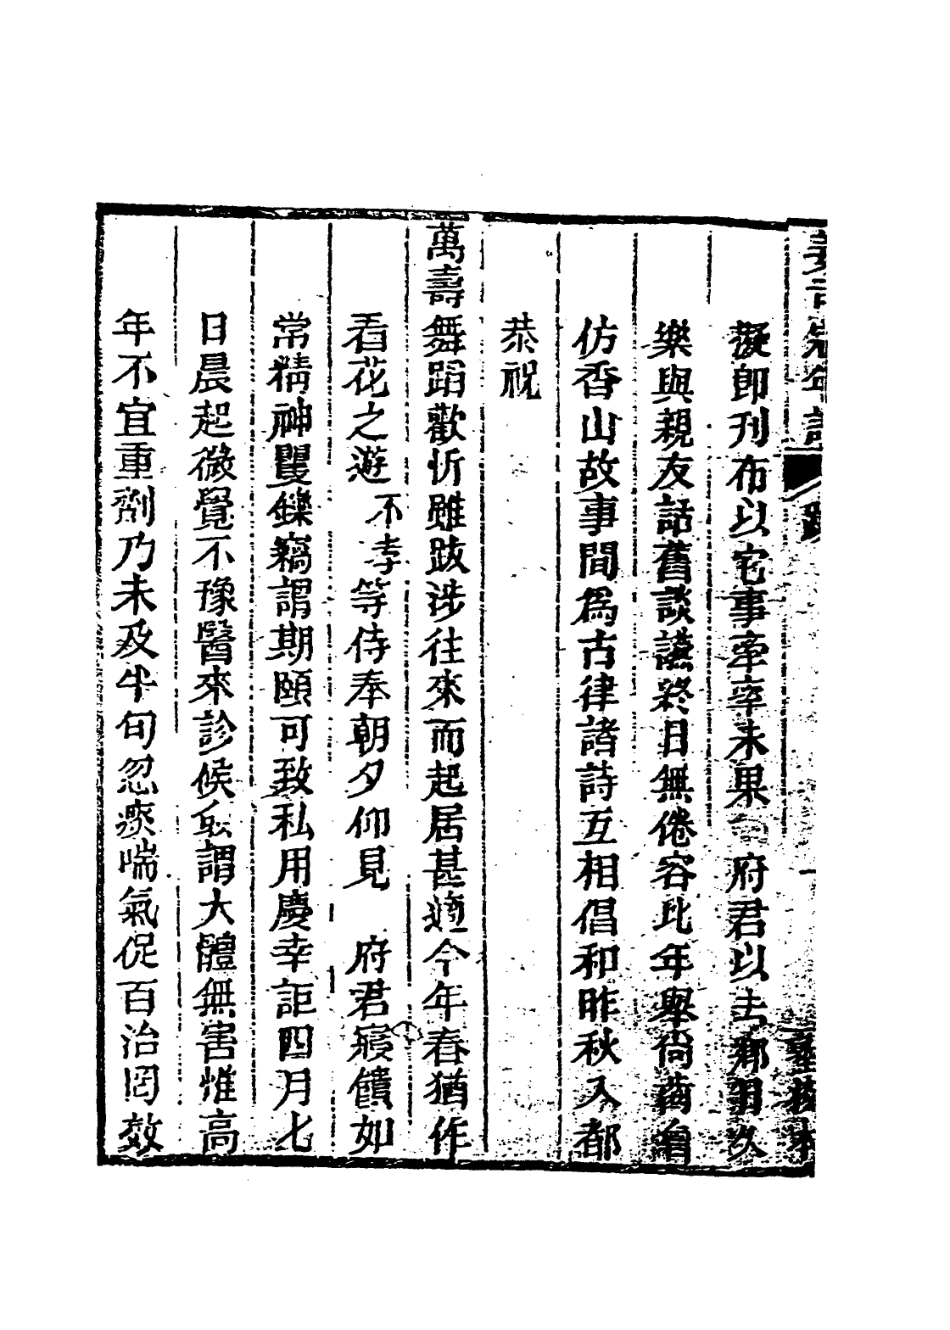 年譜
跋
擬卽刊布以它事牽率未果 府君以去鄉日久
樂與親友話舊談讌終日無倦容比年舉尚齒會
仿香山故事間爲古律諸詩互相倡和昨秋入都
恭祝
萬壽舞蹈歡忻雖跋涉往來而起居甚適今年春猶作
看花之遊不孝等侍奉朝夕仰見 府君寢饋如
常精神矍鑠竊謂期頤可致私用慶幸詎四月七
日晨起微覺不豫醫來診候僉謂大體無害惟高
年不宜重劑乃未及半旬忽痰喘氣促百治罔效